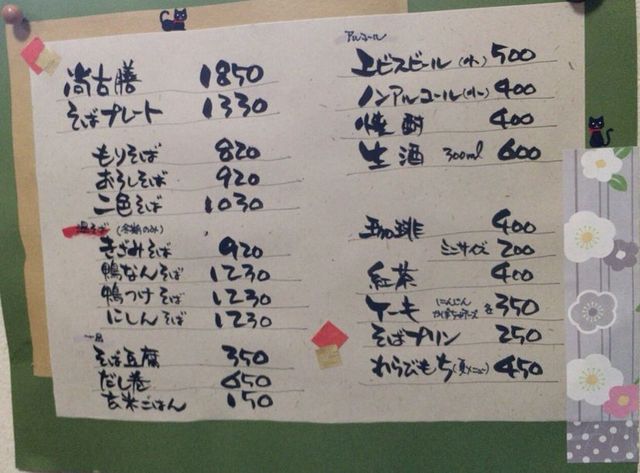 尚古膳 1850
そばプレート 1330
もりそば 820
おろしそば 920
二色そば 1030
温そば (冬期のみ)
きざみそば 920
鴨なんそば 1230
鴨つけそば 1230
にしんそば 1230
一品
そば豆腐 350
だし巻 650
玄米ごはん 150
アルコール
ヱビスビール(小) 500
ノンアルコール(小) 400
焼酎 400
生酒 300ml 600
珈琲 400
ミニサイズ 200
紅茶 400
ケーキ にんじん 各350
そばプリン 250
わらびもち(夏メニュー) 450